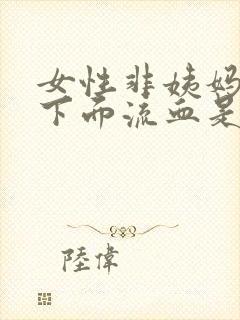 女性非姨妈
下面流血是
陸偉